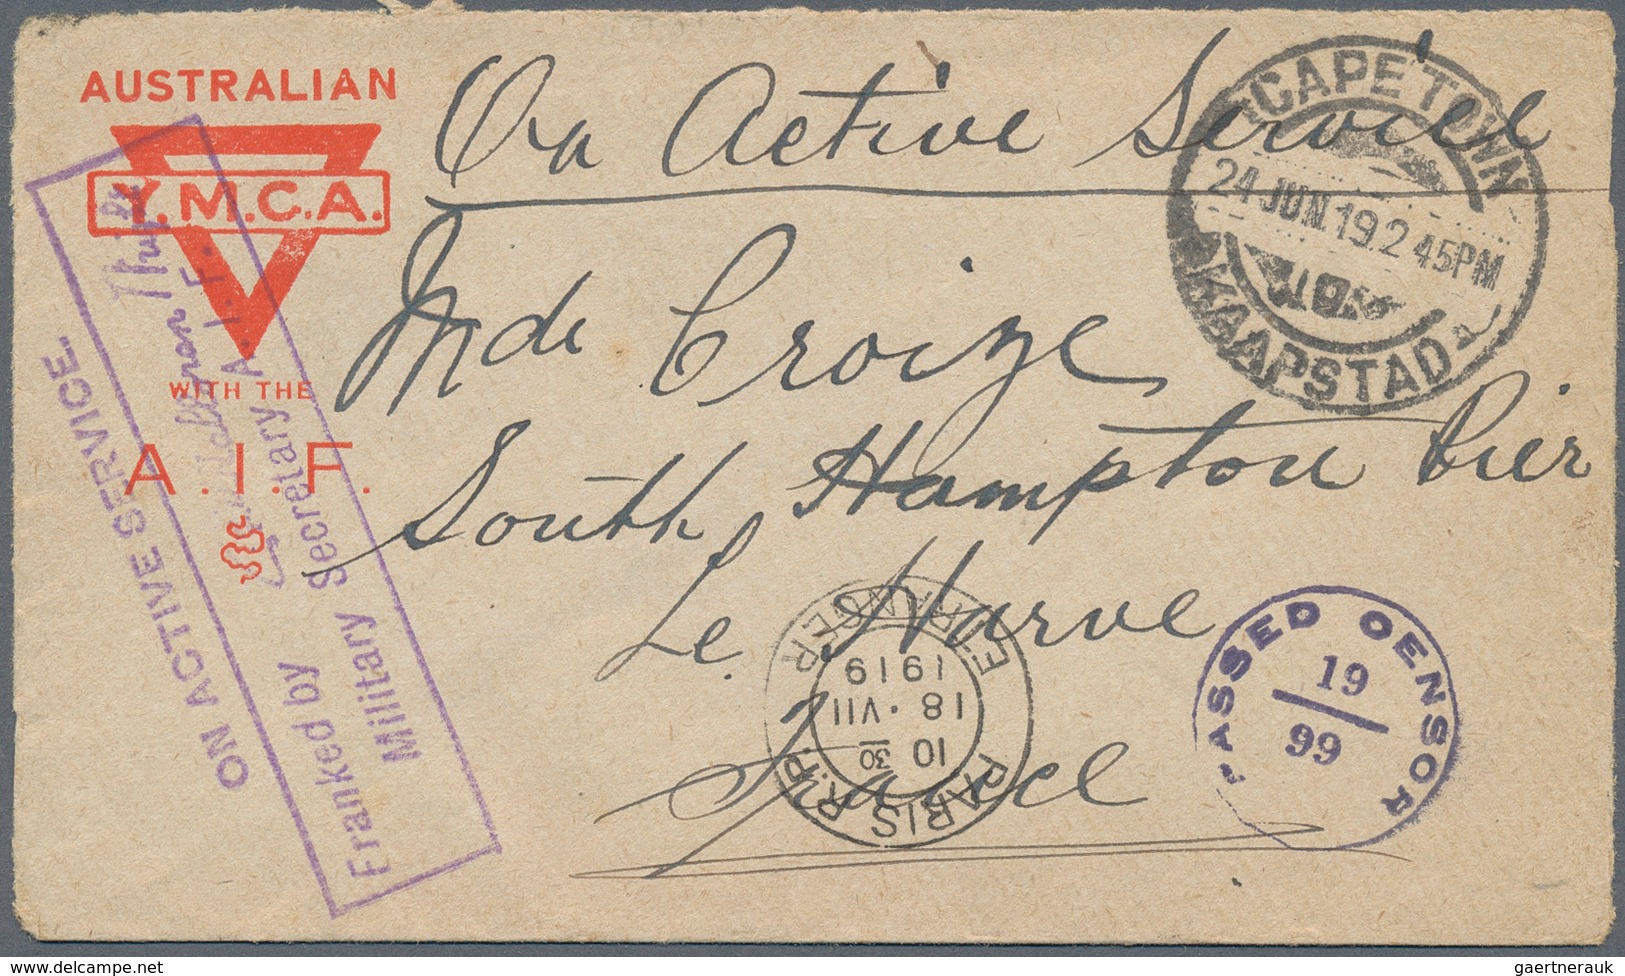 AUSTRALIAN
Y.M.C.A.
WITH THE
A.I.F.
On Active Service
Mde Croize
South Hampton Pier
Le Harve
France
CAPE TOWN
24 JUN.19.2 45PM
KAAPSTAD
ON ACTIVE SERVICE.
Franked by
Military Secretary A.I.F.
PARIS R.P.
ETRANGER
10 30
18 · VII
1919
PASSED CENSOR
19
99
delcampe.net
gaertnerauk